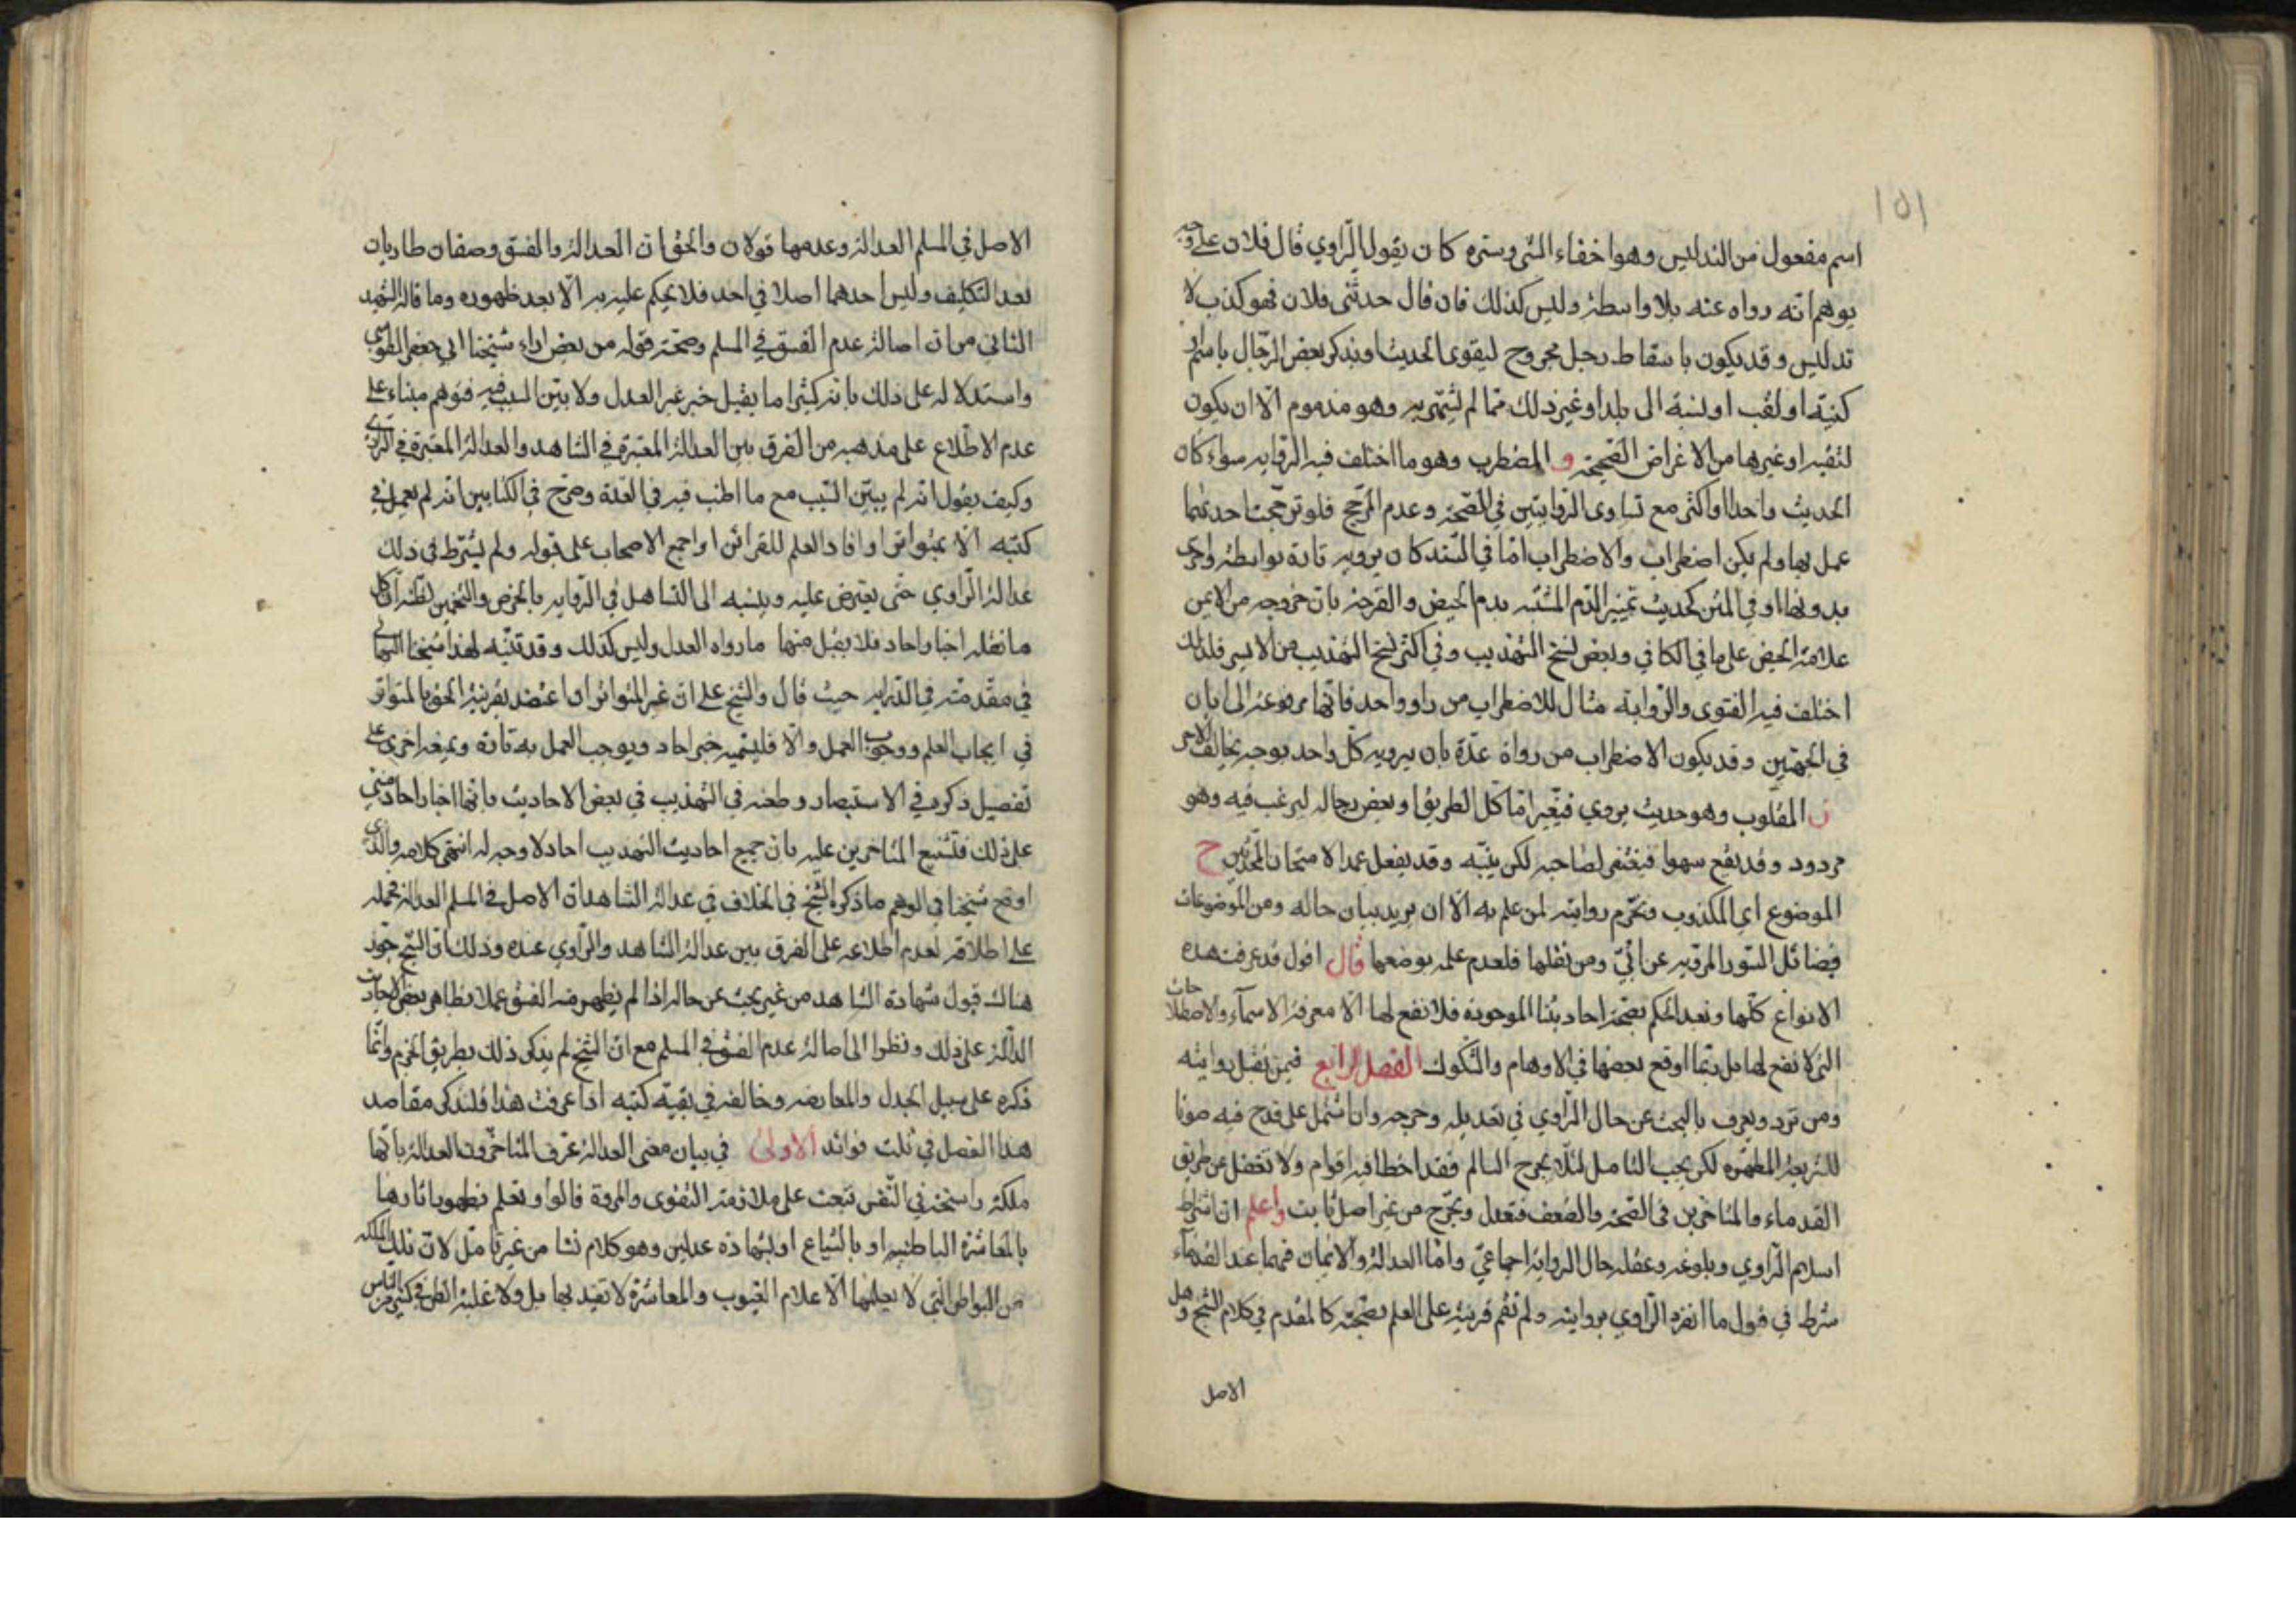 ١٥١
اسم مفعول من التدليس وهو اخفاء الشئ وستره كان يقول الراوي قال فلان على وجه
يوهم انه رواه عنه بلا واسطة وليس كذلك فان قال حدثني فلان فهو كذب لا
تدليس وقد يكون باسقاط رجل مجروح ليقوى الحديث او يذكر بعض الرجال باسم او
كنية او لقب او نسبة الى بلد او غير ذلك مما لم يشتهر به وهو مذموم الا ان يكون
لتقية او غيرها من الاغراض الصحيحة و المضطرب وهو ما اختلف فيه الرواية سواء كان
الحديث واحدا او اكثر مع تساوى الروايتين في الصحة وعدم المرجح فلو ترجحت احديهما
عمل بها ولم يكن اضطراب والاضطراب اما في السند كان يرويه تارة بواسطة واخرى
بدونها او في المتن كحديث تمييز الدم المشتبه بدم الحيض والقرحة بان خروجه من الايمن
علامة الحيض على ما في الكافي وبعض نسخ التهذيب وفي اكثر نسخ التهذيب من الايسر فلذلك
اختلف فيه الفتوى والرواية مثال للاضطراب من راو واحد فانها مرفوعة الى ابان
في الجهتين وقد يكون الاضطراب من رواة عدة بان يرويه كل واحد بوجه يخالف الاخر
ز المقلوب وهو حديث يروي فيغير اما كل الطريق او بعض رجاله ليرغب فيه وهو
مردود وقد يقع سهوا فيغتفر لصاحبه لكن ينبه وقد يفعل عمدا لامتحان المحدثين ح
الموضوع اي المكذوب وتحرم روايته لمن علم به الا ان يريد بيان حاله ومن الموضوعات
فضائل السور المروية عن ابي ومن نقلها فلعدم علمه بوضعها قال اقول قد عرفت هذه
الانواع كلها وبعد الحكم بصحة احاديثنا الموجودة فلا نفع لها الا معرفة الاسماء والاصطلاحات
التى لا نفع لها بل ربما اوقع بعضها في الاوهام والشكوك الفصل الرابع فيمن تقبل روايته
ومن ترد ويعرف بالبحث عن حال الراوي في تعديله وجرحه وان اشتمل على قدح فيه صونا
للشريعة المطهرة لكن يجب التامل لئلا يجرح السالم فقد اخطا فيه اقوام ولا تغفل عن طريق
القدماء والمتاخرين في الصحة والضعف فتعدل وتجرح من غير اصل ثابت واعلم ان اشتراط
اسلام الراوي وبلوغه وعقله حال الرواية اجماعي واما العدالة والايمان فهما عند القدماء
شرط في قبول ما انفرد الراوي بروايته ولم تقم قرينة على العلم بصحته كما تقدم في كلام الشيخ وهل
الاصل
الاصل في المسلم العدالة وعدمها قولان والحق ان العدالة والفسق وصفان طاريان
بعد التكليف وليس احدهما اصلا في احد فلا يحكم عليه به الا بعد ظهوره وما قاله الشهيد
الثاني من ان اصالة عدم الفسق في المسلم وصحة قوله من بعض اراء شيخنا ابي جعفر الطوسي
واستدلاله على ذلك بانه كثيرا ما يقبل خبر غير العدل ولا يبين السبب فيه فوهم مبناه على
عدم الاطلاع على مذهبه من الفرق بين العدالة المعتبرة في الشاهد والعدالة المعتبرة في الراوي
وكيف يقول انه لم يبين السبب مع ما اطنب فيه في العدة وصرح في الكتابين انه لم يعمل في
كتبه الا بمتواتر او افاد العلم للقرائن او اجمع الاصحاب على قبوله ولم يشترط في ذلك
عدالة الراوي حتى يعترض عليه وينسبه الى التساهل في الرواية بالخرص والتخمين لظنه ان كل
ما نقله اخبار احاد فلا يقبل منها ما رواه العدل وليس كذلك وقد تنبه لهذا شيخنا البهائي
في مقدمته في الدراية حيث قال والشيخ على ان غير المتواتر ان اعتضد بقرينة الحق بالمتواتر
في ايجاب العلم ووجوب العمل والا فليسميه خبر احاد ويوجب العمل به تارة ويمنعه اخرى على
تفصيل ذكره في الاستبصار وطعنه في التهذيب في بعض الاحاديث بانها اخبار احاد مبني
على ذلك فتشنيع المتاخرين عليه بان جميع احاديث التهذيب احاد لا وجه له انتهى كلامه والذي
اوقع شيخنا في الوهم ما ذكره الشيخ في الخلاف في عدالة الشاهد ان الاصل في المسلم العدالة فحمله
على اطلاقه لعدم اطلاعه على الفرق بين عدالة الشاهد والراوي عنده وذلك ان الشيخ جوز
هناك قبول شهادة الشاهد من غير بحث عن حاله اذا لم يظهر منه الفسق عملا بظاهر بعض الاحاديث
الدالة على ذلك ونظرا الى اصالة عدم الفسق في المسلم مع ان الشيخ لم يذكر ذلك بطريق الجزم وانما
ذكره على سبيل الجدل والمعارضة وخالفه في بقية كتبه اذا عرفت هذا فلنذكر مقاصد
هذا الفصل في ثلث فوائد الاولى في بيان معنى العدالة عرف المتاخرون العدالة بانها
ملكة راسخة في النفس تبعث على ملازمة التقوى والمروة قالوا وتعلم بظهور اثارها
بالمعاشرة الباطنية او بالشياع او بشهادة عدلين وهو كلام نشا من غير تامل لان تلك الملكة
من البواطن التي لا يعلمها الا علام الغيوب والمعاشرة لا تفيد بها بل ولا غلبة الظن في كثير من الناس